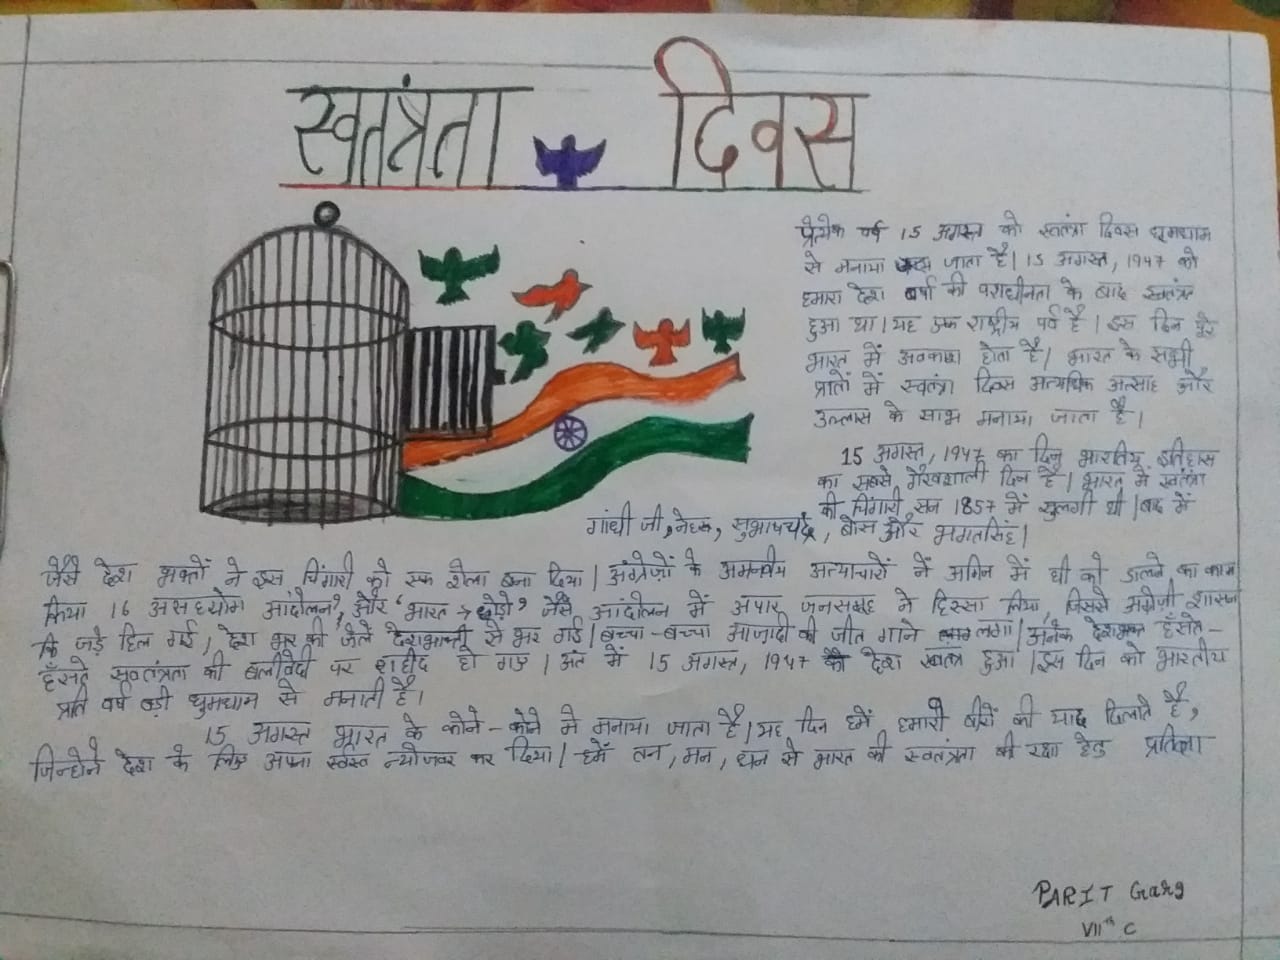 स्वतंत्रता दिवस
प्रत्येक वर्ष 15 अगस्त को स्वतंत्रा दिवस धूमधाम
से मनाया जाता है। 15 अगस्त, 1947 को
हमारा देश वर्षों की पराधीनता के बाद स्वतंत्र
हुआ था। यह एक राष्ट्रीय पर्व है। इस दिन पूरे
भारत में अवकाश होता है। भारत के सभी
प्रातों में स्वतंत्रा दिवस अत्यधिक उत्साह और
उल्लास के साथ मनाया जाता है।
15 अगस्त, 1947 का दिन भारतिय इतिहास
का सबसे गौरवशाली दिन है। भारत में स्वतंत्रता
की चिंगारी सन 1857 में सुलगी थी। बाद में
गांधी जी, नेहरू, सुभाषचंद्र, बोस और भगतसिंह।
जैसे देश भक्तों ने इस चिंगारी को एक शोला बना दिया। अंग्रेजों के अमनवीय अत्याचारों नें अग्नि में घी को डालने का काम
किया और 'भारत छोड़ो' जैसे आंदोलन में अपार जनसमूह ने हिस्सा लिया, जिससे अंग्रेजी शासन
कि जड़े हिल गई, देश भर की जेले देशभक्तों से भर गई। बच्चा-बच्चा आज़ादी की जीत गाने लगा। अनेक देशभक्त हँसते-
हँसते स्वतंत्रता की बलीवेदी पर शहीद हो गए। अंत में 15 अगस्त, 1947 को देश स्वतंत्र हुआ। इस दिन को भारतीय
प्रति वर्ष बड़ी धुमधाम से मनाती है।
15 अगस्त भारत के कोने-कोने मे मनाया जाता है। यह दिन हमें हमारी वीरों की याद दिलाते है,
जिन्होने देश के लिए अपना न्योछावर कर दिया। हमें तन, मन, धन से भारत की स्वतंत्रता की रक्षा हेतु प्रतिज्ञा
PARIT Garg
VIIth C